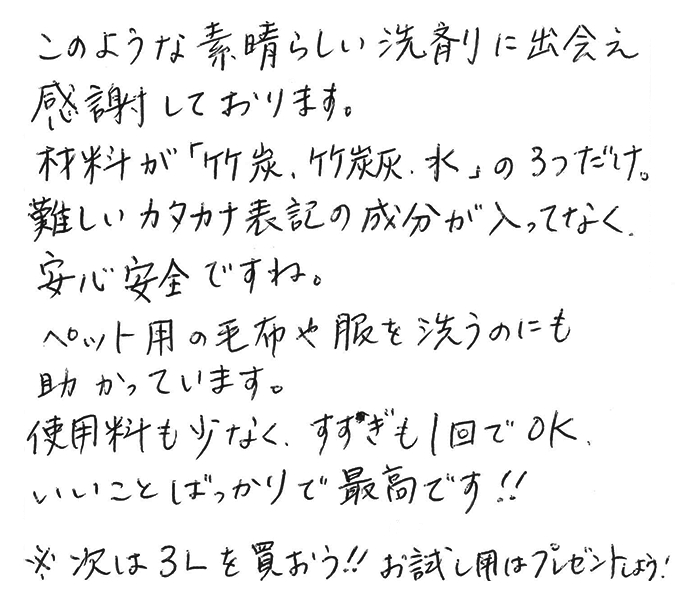 このような素晴らしい洗剤に出会え
感謝しております。
材料が「竹炭、竹炭灰、水」の3つだけ。
難しいカタカナ表記の成分が入ってなく、
安心安全ですね。
ペット用の毛布や服を洗うのにも
助かっています。
使用料も少なく、すすぎも1回でOK、
いいことばっかりで最高です!!
※次は3Lを買おう!!お試し用はプレゼントしよう!